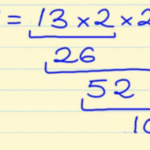 = 13 × 2 × 2
26
52
10